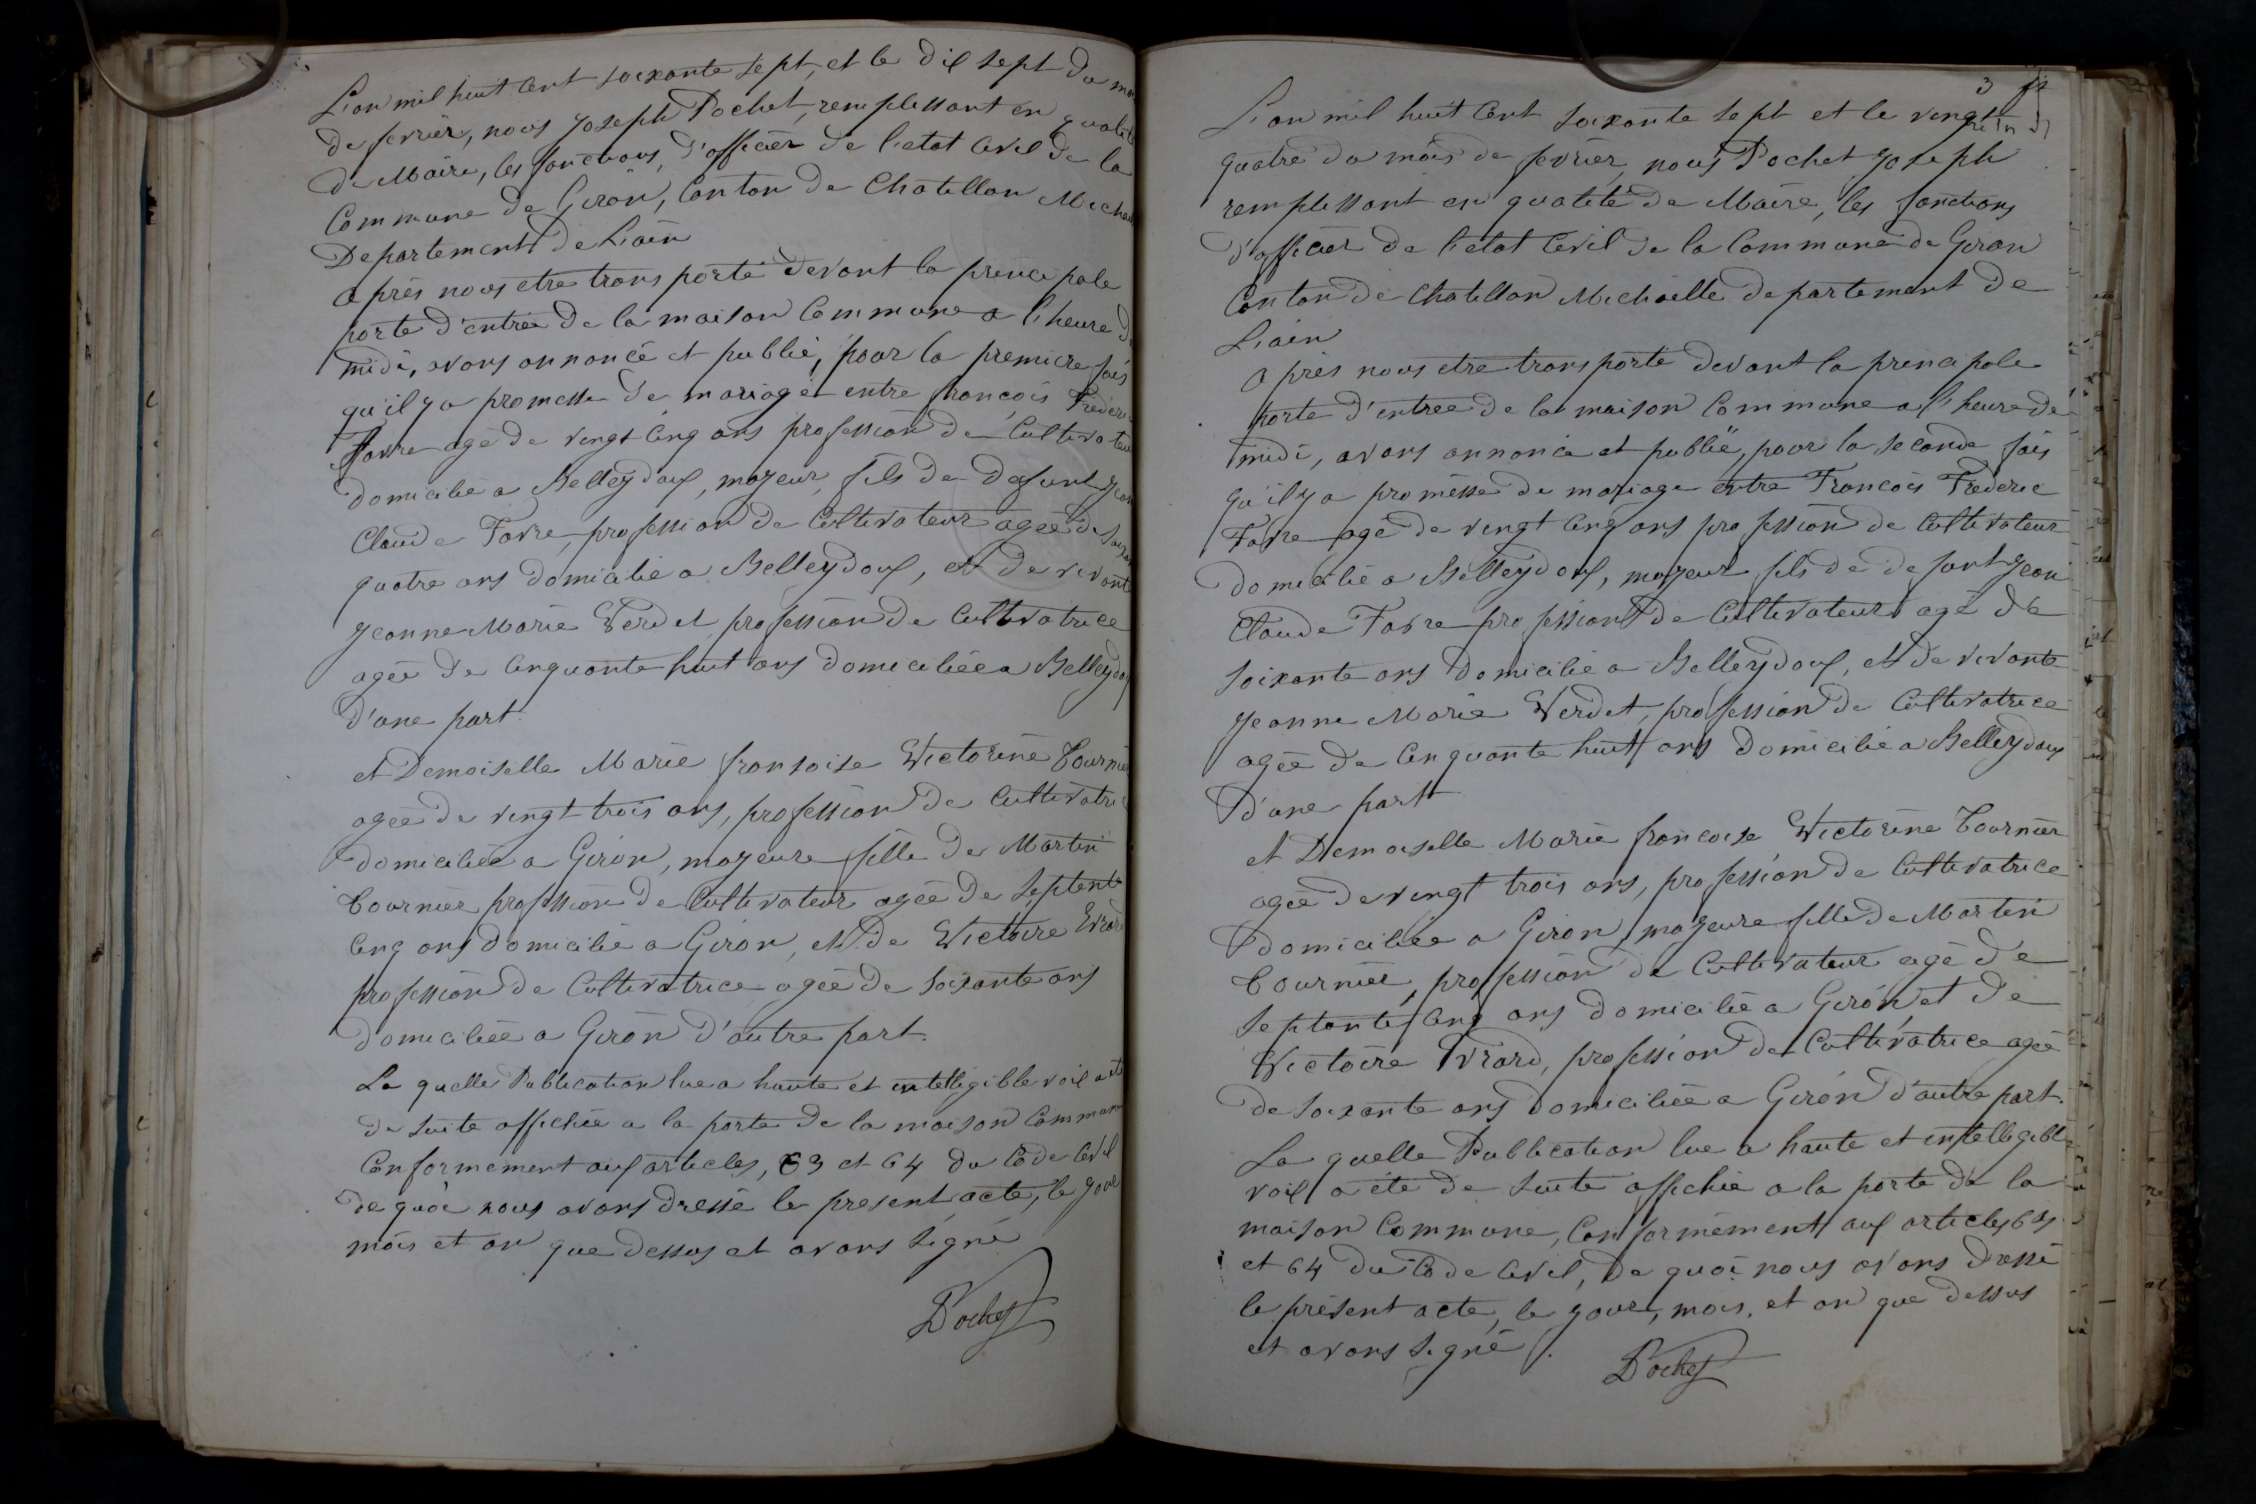 L'an mil huit cent soixante sept, et le dix sept du mois
de fevrier, nous Joseph Pochet, remplissant en qualité
de Maire, les fonctions, d'officier de l'etat Civil de la
Commune de Giron, Canton de Chatillon Michail
Departement de L'ain
après nous etre transporté devant la principale
porte d'entrée de la maison Commune a l'heure d
midi, avons annoncé et publié, pour la premiere fois
qu'il y a promesse de mariage entre françois Frederi
Favre agé de vingt cinq ans profession de Cultivateu
domicilié a Belleydoux, mayeur, fils de defunt Jean
Claude Favre, profession de Cultivateur agée de Soixan
quatre ans domicilié a Belleydoux, et de vivante
Jeanne Marie Verdet profession de Cultivatrice
agée de Cinquante huit ans domiciliée a Belleydoux
d'une part.
et Demoiselle Marie fransoise Victorine Tournier
agée de vingt trois ans, profession de Cultivatric
domiciliée a Giron, mayeure fille de Martin
Tournier profession de Cultivateur agée de Septente
Cinq ans domicilié a Giron, et de Victoire Evrard
profession de Cultivatrice agée de Soixante ans
domiciliée a Giron d'autre part.
La quelle Publication lue a haute et intelligible voix a ete
de suite affichée a la porte de la maison Commune
Conformement aux articles, 63 et 64 du Code Civil
de quoi nous avons dressé le present acte, le jour
mois et an que dessus et avons signé
Pochet
3
L'an mil huit cent soixante sept et le vingt
quatre du mois de fevrier, nous Pochet Joseph
remplissant en qualité de Maire, les fonctions
d'officier de l'etat Civil de la Commune de Giron
Canton de Chatillon Michaille departement de
L'ain
après nous etre transporté devant la principale
porte d'entrée de la maison Commune a l'heure de
midi, avons annoncé et publié, pour la seconde fois
qu'il y a promesse de mariage entre François Frederic
Favre agé de vingt cinq ans profession de Cultivateur
domicilié a Belleydoux, mayeur fils de defunt Jean
Claude Favre profession de Cultivateur agé de
soixante ans domicilié a Belleydoux, et de vivante
Jeanne Marie Verdet, profession de Cultivatrice
agée de Cinquante huit ans domicilié a Belleydoux
d'une part
et Demoiselle Marie françoise Victorine Tournier
agée de vingt trois ans, profession de Cultivatrice
domiciliée a Giron, mayeure fille de Martin
Tournier, profession de Cultivateur agé de
septante cinq ans domicilié a Giron et de
Victoire Evrard, profession de Cultivatrice agée
de soixante ans domiciliée a Giron d'autre part.
La quelle Publication lue a haute et intelligible
voix a été de suite affichée a la porte de la
maison Commune, Conformement aux articles 63
et 64 du Code Civil, de quoi nous avons dressé
le présent acte, le jour, mois, et an que dessus
et avons signé.
Pochet